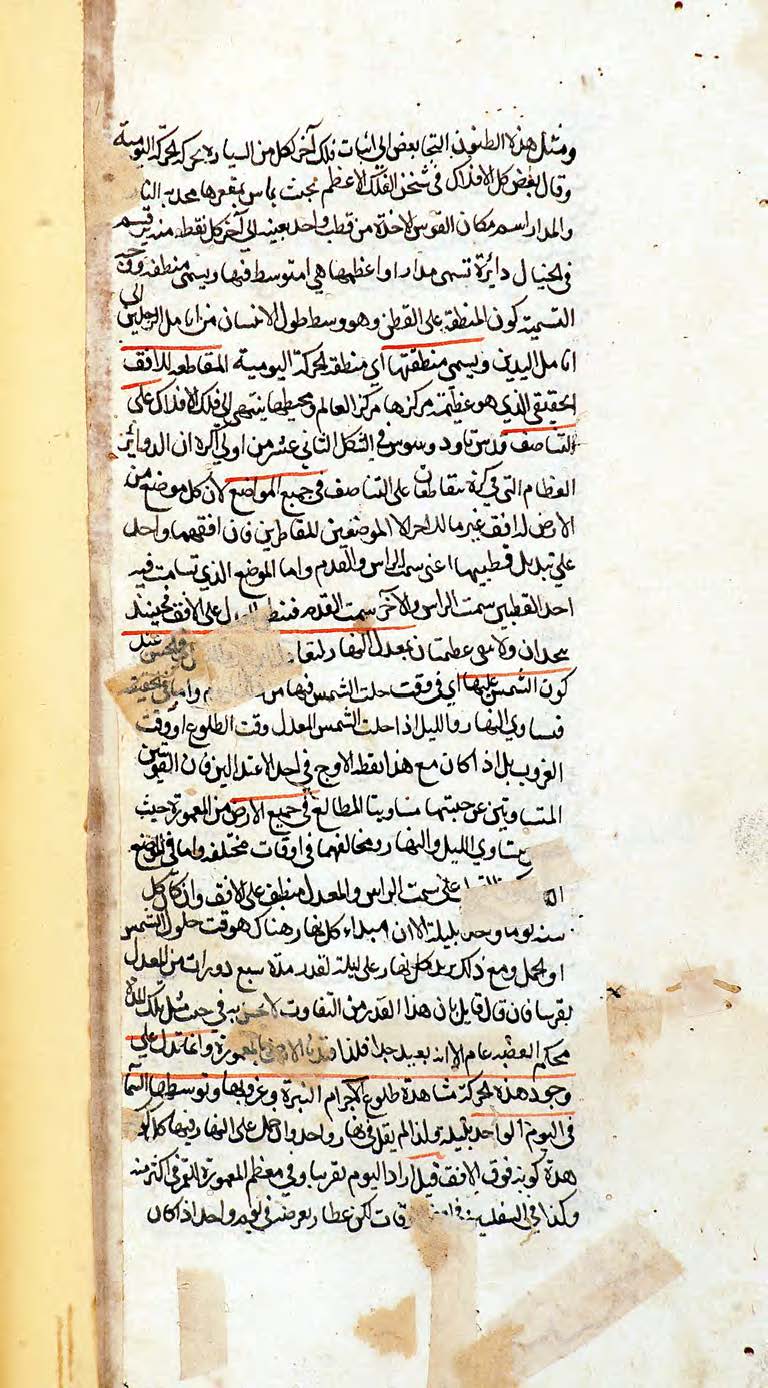 ومثل هذه الظنون التجا بعض الى اثبات فلك آخر لكل من السيارة يحركه الحركة اليومية
وقال بعض كل الافلاك في شخن الفلك الاعظم بحيث يماس بمقعرها محدب النار
والمدار اسم مكان القوس لاخذة من قطب واحد بعينه الى آخر كل نقطة منه يرتسم
في الخيال دائرة تسمى مدارا واعظمها هي المتوسط فيها ويسمى منطقة ووجه
التسمية كون المنطقة على القطن وهو وسط طول الانسان من انامل الرجلين الى
انامل اليدين ويسمى منطقتها اي منطقة الحركة اليومية المقاطعة للافق
الحقيقي الذي هو عظيمة مركزها مركز العالم ومحيطها ينتهي الى فلك الافلاك على
التناصف قد بين ثاودوسوس في الشكل الثاني عشر من اولى اكره ان الدوائر
العظام التي في كرة يتقاطعان على التناصف في جميع المواضع لان كل موضع من
الارض له افق غير ما للاخر الا الموضعين للقاطرين فان افقهما واحد
على تبديل قطبيها اعني سمت الراس والقدم واما الموضع الذي تسامت فيه
احد القطبين سمت الراس والآخر سمت القدم فينطبق على الافق فحينئذ
يتحدان ولا يبقى عظيمتان بمعدل النهار لتعادل عند
كون الشمس عليها اي في وقت حلت الشمس فيها من واما في الحقيقة
فتساوي النهار والليل اذا حلت الشمس المعدل وقت الطلوع او وقت
الغروب بل اذا كان مع هذا نقطة الاوج في احد الاعتدالين فان القوسين
المتساويتين عن جنبتها متساويتا المطالع في جميع الارض من المعمورة حيث
يتساوي الليل والنهار ومخالفهما في اوقات مختلفة واما في الموضع
على سمت الراس والمعدل منطبق على الافق وان كان كل
سنة يوما وحد بليلة الا ان مبداء كل نهار هناك هو وقت حلول الشمس
اول الحمل ومع ذلك يزيد كل نهار على ليلة لقدر مدة سبع دورات من المعدل
تقريبا فان قال قايل بان هذا القدر من التفاوت لا يحس به في جنب مثل تلك المدة
محكم القضية عام الا انه بعيد جدا فلذا قيد الارض بالمعمورة وانما تدل على
وجود هذه الحركة مشاهدة طلوع الاجرام النيرة وغروبها وتوسطها السماء
في اليوم الواحد بليلة ولذا لم يقل في نهار واحد وان حمل على النهار فيها كل كو
مدة كونه فوق الافق قبل اراد اليوم تقريبا وفي معظم المعمورة القمر في اكثر منه
وكذا في السفليين في اوقات لكن عطارد يعرضه في يوم واحد اذا كان